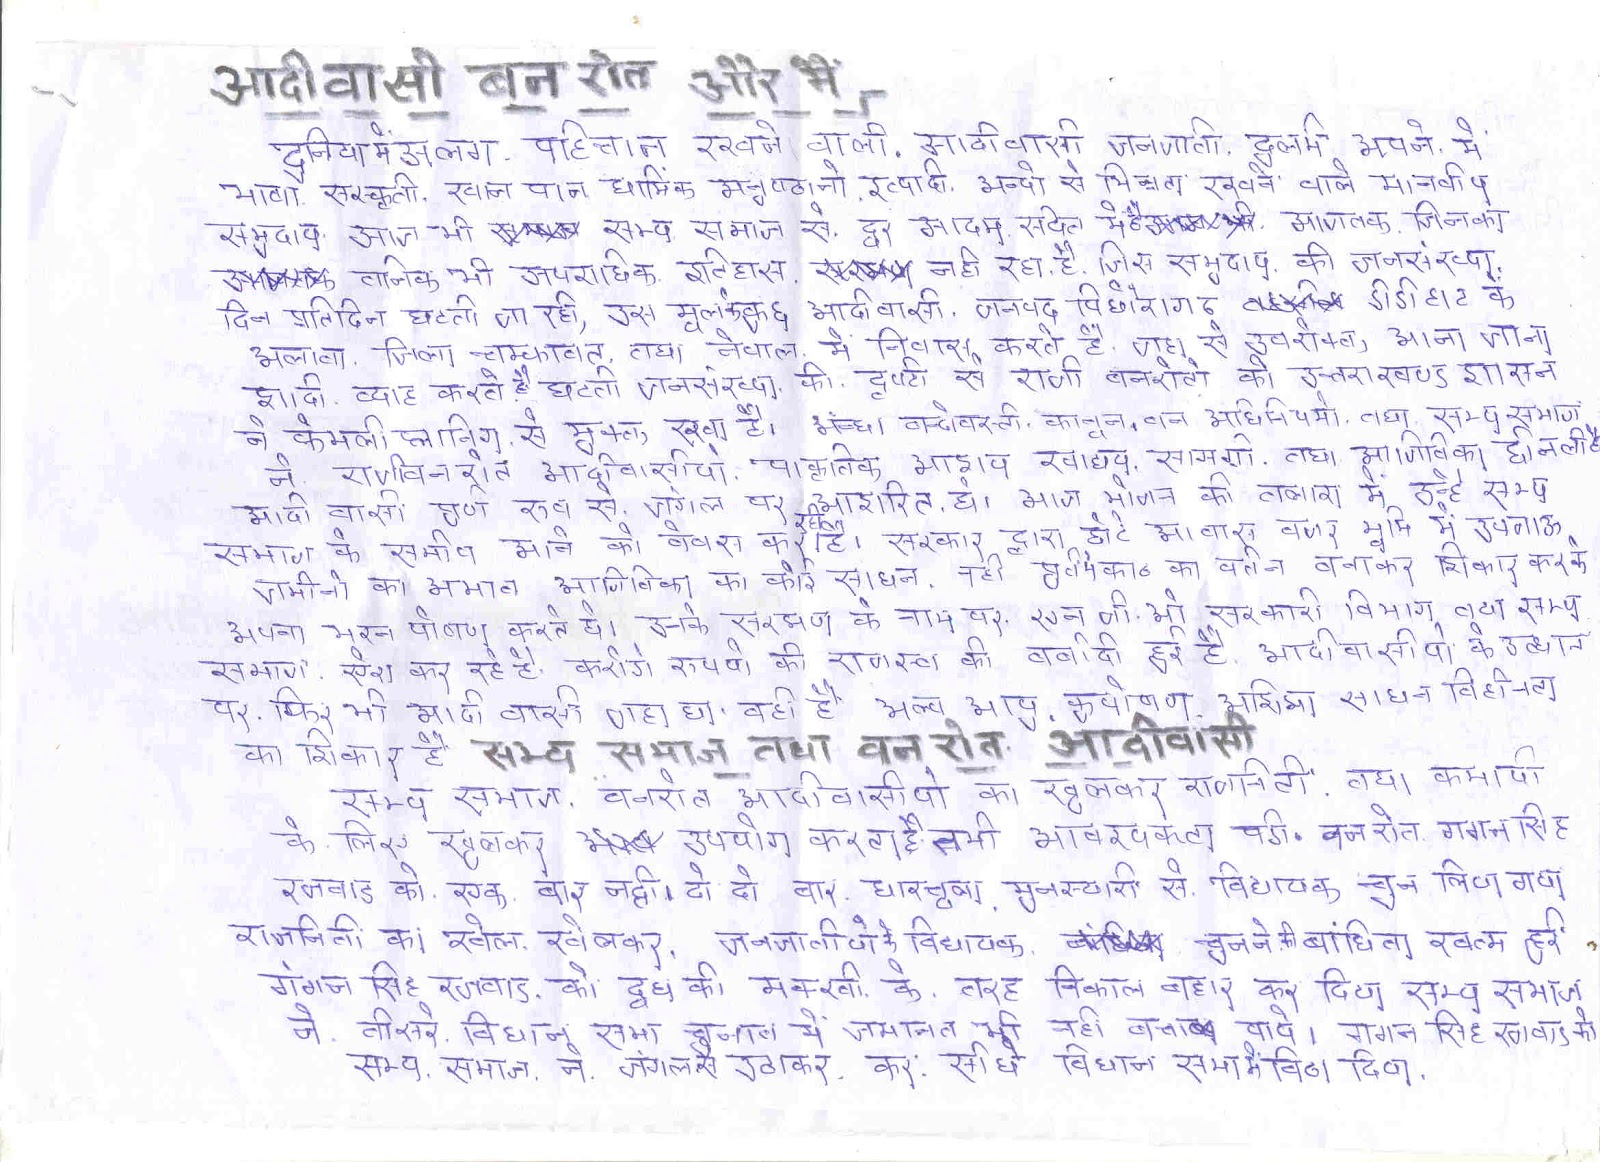 आदीवासी बन रोत और मैं
दुनिया में अलग. पहिचान रखने वाली. आदीवासी जनजाती. दुलर्भ अपने. में
भाषा. संस्कृती. खान पान धार्मिक अनुष्ठानो. इत्यादी. अन्यो से भिन्नता रखने वाले मानवीय
समुदाय. आज भी सभ्य समाज से. दूर आदम. में है आजतक. जिनका
तनिक भी अपराधिक. इतिहास. नही रहा. है. जिस समुदाय. की जनसंख्या.
दिन प्रतिदिन घटती जा रही, उस मूलंककुछ आदीवासी. जनपद पिथौरागढ डीडीहाट के
अलावा. जिला चम्पावत. तथा नेपाल. में निवास करते है. जहा से उपरोक्त, आना जाना
शादी. व्याह करते है घटती जनसंख्या. की. दृष्टी से राजी वनरोतो को उत्तराखण्ड शासन
ने फेमली प्लानिग. से मुक्त, रखा है। वन्दोवस्ती. कानून, वन अधिनियमो. तथा. सभ्य समाज
ने. राजीवनरोत आदीवासीयो. प्राकृतिक आश्रय खाद्यय. सामग्री. तथा. आजिविका छीनली है
आदी वासी पूर्ण रुप से. जंगल पर आश्रित. थे। आज भोजन की तलाश में उन्हे सभ्य
समाज के समीप आने को वेवस कर रही है। सरकार द्वारा छोटे आवास वंजर भूमि में उपजाऊ
जमीनो का अभाव आजिविका का कोई साधन. नही पूर्व में काठ का वर्तन वनाकर शिकार करके
अपना भरन पोषण करते थे। उनके संरक्षण के नाम पर. एन. जी. ओ सरकारी विभाग तथा सभ्य
समाज. ऐश कर रहे है. करोडो रुपयो की राजस्व की वर्वादी हुई है. आदीवासीयो के उत्थान
पर. फिर भी आदी वासी जहा था. वही है अल्प आयु. कुपोषण. अशिक्षा साधन विहीनता
का शिकार है सभ्य समाज तथा वन रोत. आदीवासी
सभ्य समाज. वनरोत आदीवासीयो का खुलकर राजनिती. तथा कमायी
के. लिए खुलकर उपयोग करता है जभी आवश्यकता पडी. वनरोत. गगन सिंह
रजवाड को. एक. वार नही। दो दो वार. धारचूला. मुनस्यारी से. विधायक चुन लिया गया
राजनिती का खेल. खेलकर. जनजातीयो के विधायक. चुनने की बांधिता खत्म हुई
गंगन सिंह रजवाड. को दुध की मक्खी. के. तरह निकाल बाहार कर दिया सभ्य समाज
ने. तीसरे विधान सभा चुनाव में जमानत भी नही वचा पाये। गगन सिंह रजवाड को
सभ्य. समाज. ने. जंगल से उठाकर. कर. सीधे विधान सभा में विठा दिया.